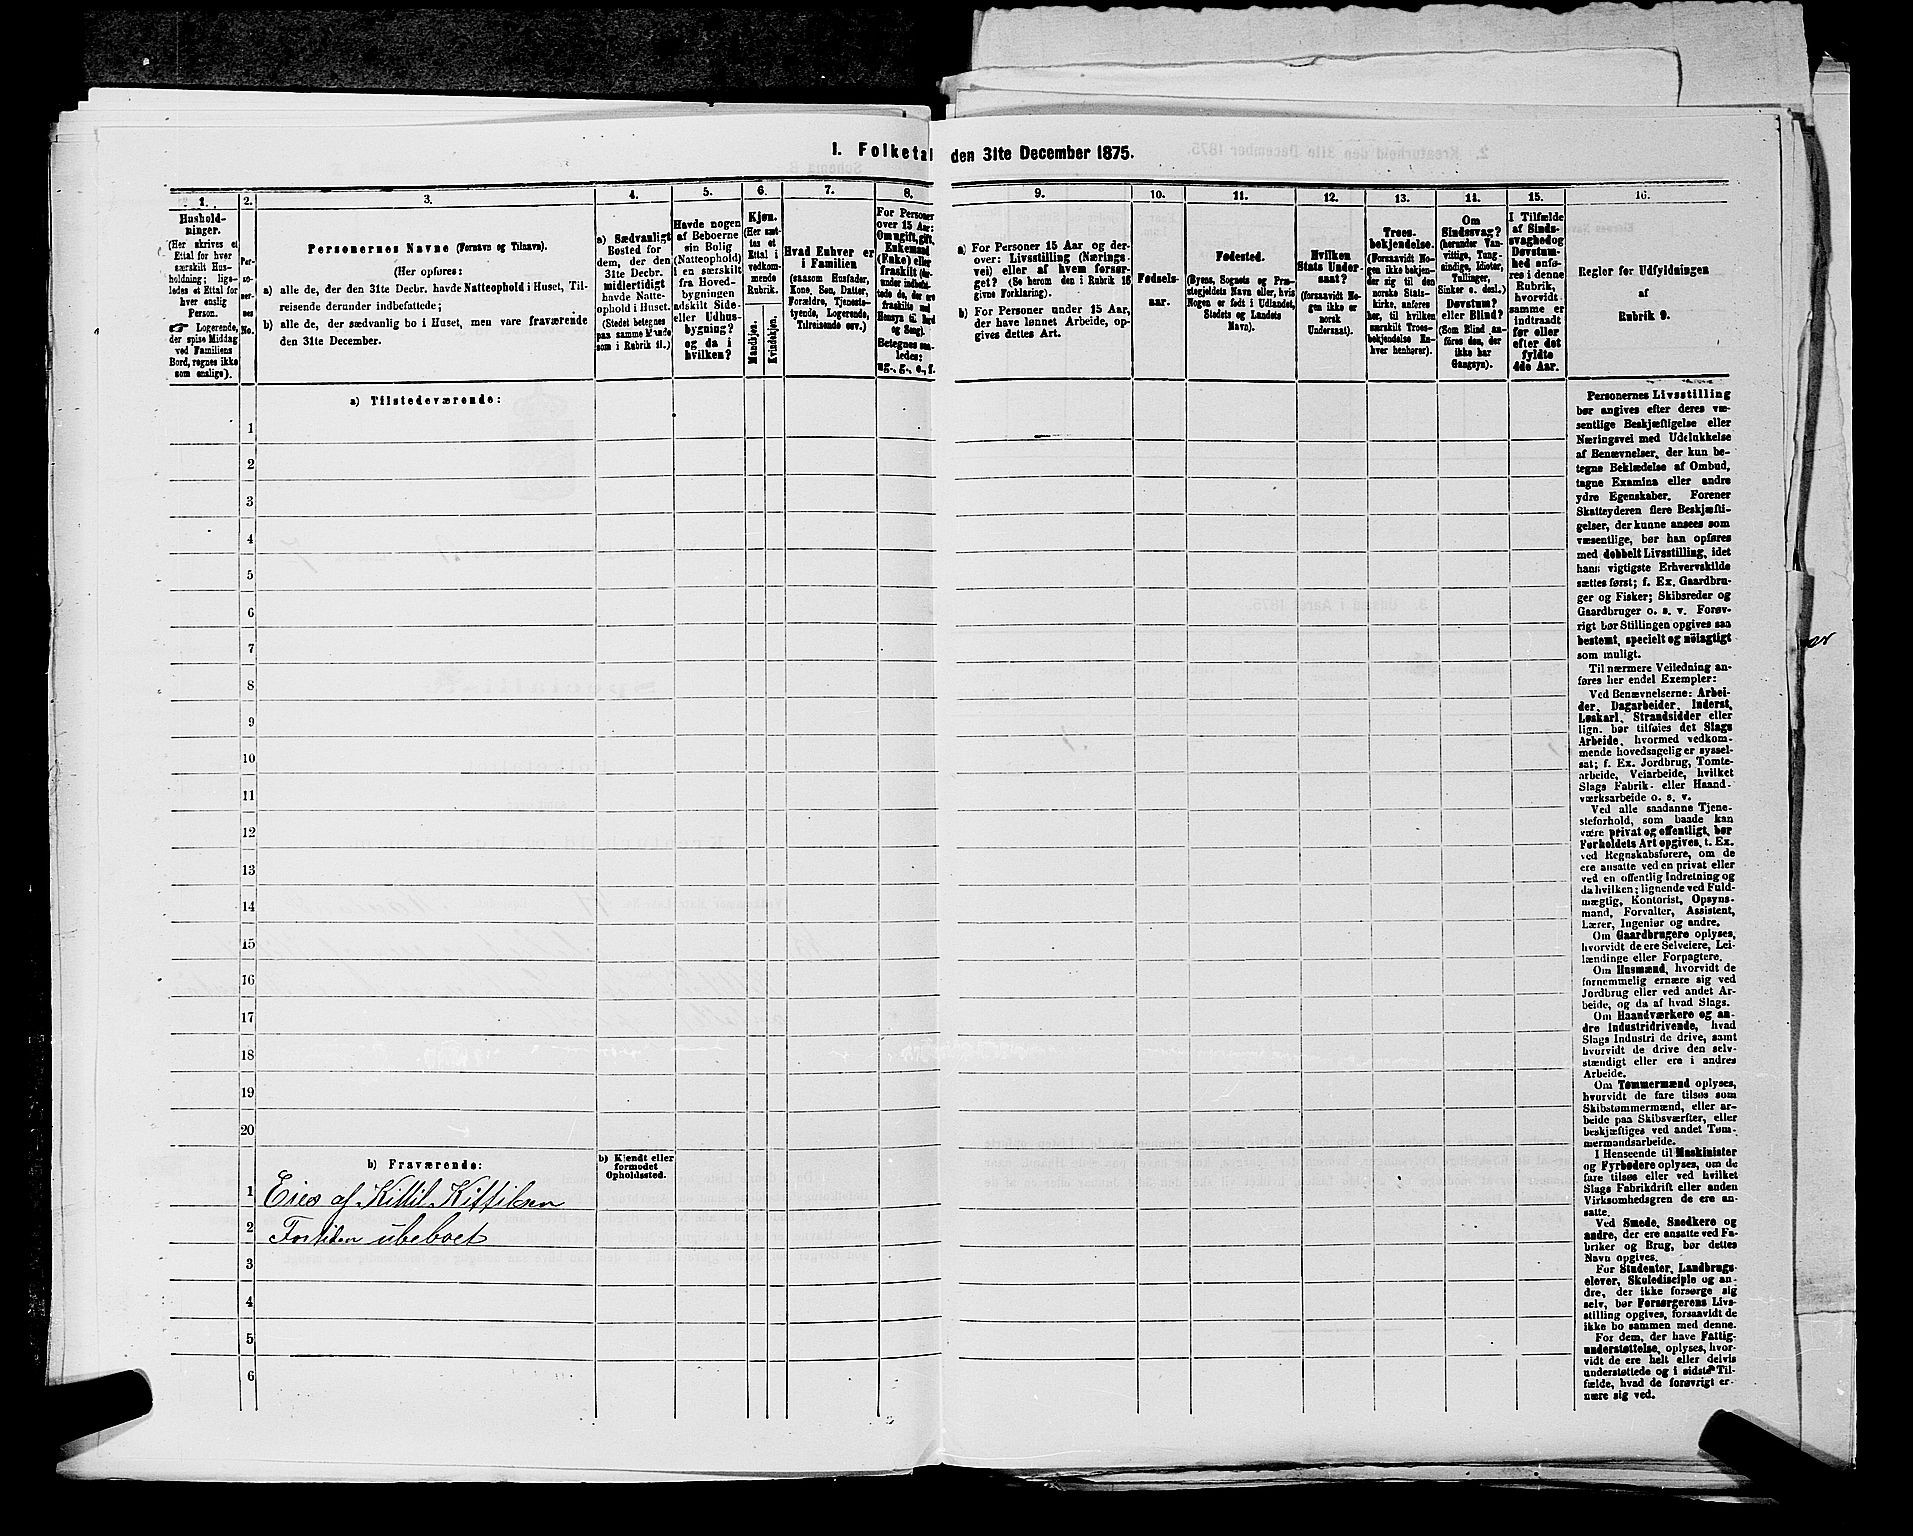 I. Folketal den 31te December 1875.
1.
Hushold-
ninger.
(Her skrives et
Ettal for hver
særskilt Hus-
holdning; lige-
ledes et Ettal for
hver enslig
Person.
☞ Logerende,
der spise Middag
ved Familiens
Bord, regnes ikke
som enslige).
2.
Per-
so-
ner-
nes
No.
3.
Personernes Navne (Fornavn og Tilnavn).
(Her opføres:
a) alle de, der den 31te Decbr. havde Natteophold i Huset, Til-
reisende derunder indbefattede;
b) alle de, der sædvanlig bo i Huset, men vare fraværende
den 31te December.
4.
a) Sædvanligt
Bosted for
dem, der den
31te Decbr.
midlertidigt
havde Natte-
ophold i Huset.
(Stedet betegnes
paa samme Maade
som i Rubrik 11.)
5.
Havde nogen
af Beboerne
sin Bolig
(Natteophold)
i en særskilt
fra Hoved-
bygningen
adskilt Side-
eller Udhus-
bygning?
og da i
hvilken?
6.
Kjøn.
(Her sæt-
tes et
Ettal i
vedkom-
mende
Rubrik.
Mandkjøn.
Kvindekjøn.
7.
Hvad Enhver er
i Familien
(saasom Husfader,
Kone, Søn, Datter,
Forældre, Tjeneste-
tyende, Logerende,
Tilreisende osv.)
8.
For Personer
over 15 Aar:
Om ugift, gift,
Enkemand
(Enke) eller
fraskilt (der-
under indbefat-
tede de, der ere
fraskilte med
Hensyn til Bord
og Seng).
Betegnes saa-
ledes:
ug., g., e., f.
9.
a) For Personer 15 Aar og der-
over: Livsstilling (Nærings-
vei) eller af hvem forsør-
get? (Se herom den i Rubrik 16
givne Forklaring).
b) For Personer under 15 Aar,
der have lønnet Arbeide, op-
gives dettes Art.
10.
Fødsels-
aar.
11.
Fødested.
(Byens, Sognets og Præ-
stegjeldets Navn eller, hvis
Nogen er født i Udlandet,
Stedets og Landets
Navn).
12.
Hvilken
Stats Under-
saat?
(forsaavidt No-
gen ikke er
norsk
Undersaat).
13.
Troes-
bekjendelse.
(Forsaavidt No-
gen ikke bekjen-
der sig til den
norske Stats-
kirke, anføres
her, til hvilken
særskilt Troes-
bekjendelse En-
hver henhører).
14.
Om
Sindssvag?
(herunder Van-
vittige, Tung-
sindige, Idioter,
Tullinger,
Sinker o. desl.)
Døvstum?
eller Blind?
(Som Blind an-
føres den, der
ikke har
Gangsyn).
15.
I Tilfælde
af Sinds-
svaghed og
Døvstum-
hed anfø-
res i denne
Rubrik,
hvorvidt
samme er
indtraadt
før eller
efter det
fyldte
4de Aar.
16.
Regler for Udfyldningen
af
Rubrik 9.
a) Tilstedeværende:
1
2
3
4
5
6
7
8
9
10
11
12
13
14
15
16
17
18
19
20
b) Fraværende:
b) Kjendt eller
formodet
Opholdssted.
1 Eies af Kittil Kittilsen
2 For tiden ubeboet
3
4
5
6
Personernes Livsstilling
bør angives efter deres væ-
sentlige Beskjæftigelse eller
Næringsvei med Udelukkelse
af Benævnelser, der kun be-
tegne Beklædelse af Ombud,
tagne Examina eller andre
ydre Egenskaber. Forener
Skatteyderen flere Beskjæfti-
gelser, der kunne ansees som
væsentlige, bør han opføres
med dobbelt Livsstilling, idet
hans vigtigste Erhvervskilde
sættes først; f. Ex. Gaardbru-
ger og Fisker; Skibsreder og
Gaardbruger o. s. v. Forøv-
rigt bør Stillingen opgives saa
bestemt, specielt og nøiagtigt
som muligt.
Til nærmere Veiledning an-
føres her endel Exempler:
Ved Benævnelserne: Arbei-
der, Dagarbeider, Inderst,
Løskarl, Strandsidder eller
lign. bør tilføies det Slags
Arbeide, hvormed vedkom-
mende hovedsagelig er syssel-
sat; f. Ex. Jordbrug, Tomte-
arbeide, Veiarbeide, hvilket
Slags Fabrik- eller Haand-
værksarbeide o. s. v.
Ved alle saadanne Tjene-
steforhold, som baade kan
være privat og offentligt, bør
Forholdets Art opgives, f. Ex.
ved Regnskabsførere, om de
ere ansatte ved en privat eller
ved en offentlig Indretning og
da hvilken; lignende ved Fuld-
mægtig, Kontorist, Opsyns-
mand, Forvalter, Assistent,
Lærer, Ingeniør og andre.
Om Gaardbrugere oplyses,
hvorvidt de ere Selveiere, Lei-
lændinge eller Forpagtere.
Om Husmænd, hvorvidt de
fornemmelig ernære sig ved
Jordbrug eller ved andet Ar-
beide, og da af hvad Slags.
Om Haandværkere og an-
dre Industridrivende, hvad
Slags Industri de drive, samt
hvorvidt de drive den selv-
stændigt eller ere i andres
Arbeide.
Om Tømmermænd oplyses,
hvorvidt de fare tilsøs som
Skibstømmermænd, eller ar-
beide paa Skibsværfter, eller
beskjæftiges ved andet Tøm-
mermandsarbeide.
I Henseende til Maskinister
og Fyrbødere oplyses, om de
fare tilsøs eller ved hvilket
Slags Fabrikdrift eller anden
Virksomhedsgren de ere an-
satte.
Ved Smede, Snedkere og
andre, der ere ansatte ved Fa-
briker og Brug, bør dettes
Navn opgives.
For Studenter, Landbrugs-
elever, Skoledisciple og an-
dre, der ikke forsørge sig
selv, bør Forsørgerens Livs-
stilling opgives, forsaavidt de
ikke bo sammen med denne.
For dem, der have Fattig-
understøttelse, oplyses, hvor-
vidt de ere helt eller delvis
understøttede og i sidste Til-
fælde, hvad de forøvrigt er-
nære sig ved.